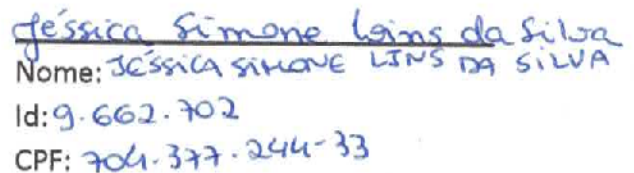 Jéssica Simone Lins da Silva
Nome: JÉSSICA SIMONE LINS DA SILVA
Id: 9.662.702
CPF: 704.377.244-33